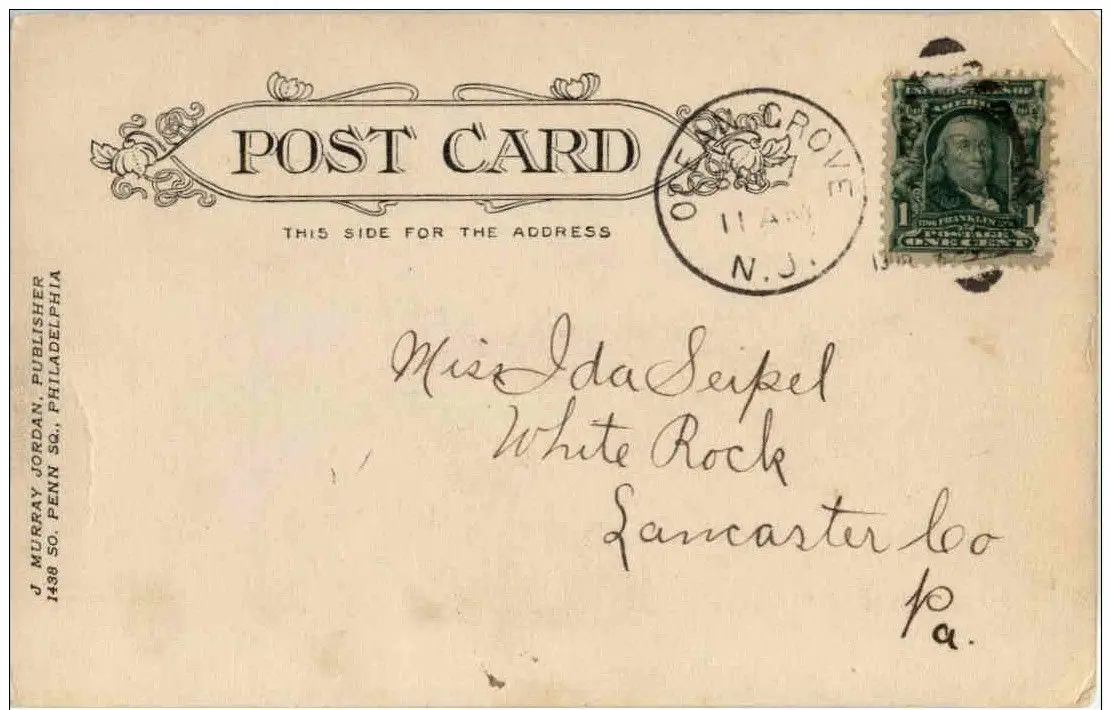 POST CARD
THIS SIDE FOR THE ADDRESS
OCEAN GROVE
11 AM
N.J.
AMERICA
1 FRANKLIN 1
POSTAGE
ONE CENT
Miss Ida Seipel
White Rock
Lancaster Co
Pa.
J MURRAY JORDAN, PUBLISHER
1438 SO. PENN SQ., PHILADELPHIA